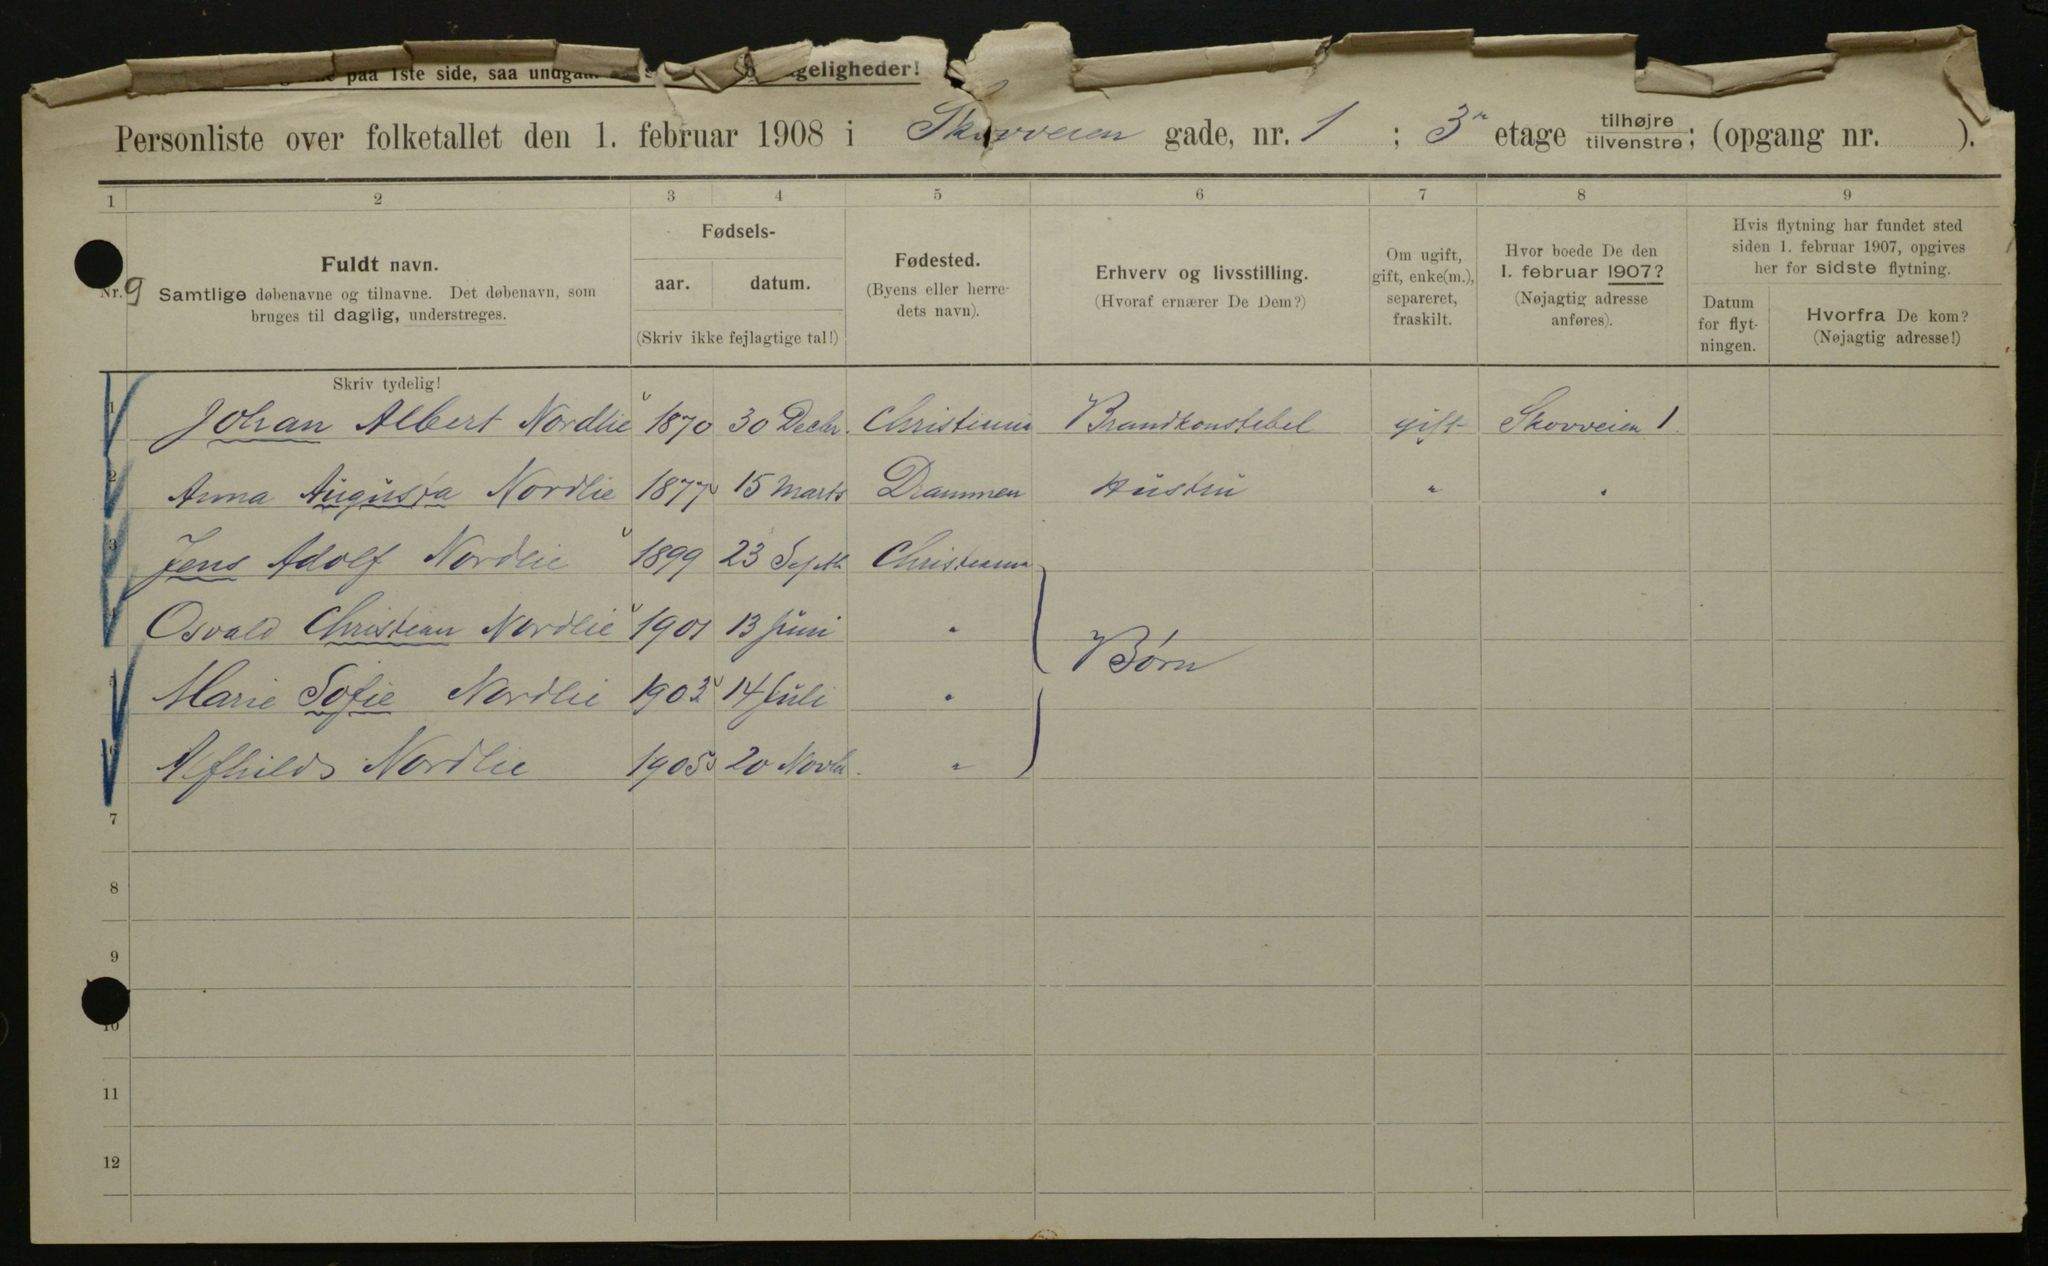 paa 1ste side, saa undgaa geligheder!
Personliste over folketallet den 1. februar 1908 i Skovveien gade, nr. 1 ; 3 etage tilhøjre tilvenstre; (opgang nr. ).
1 2 3 4 5 6 7 8 9
Nr. 9
Fuldt navn.
Samtlige døbenavne og tilnavne. Det døbenavn, som
bruges til daglig, understreges.
Skriv tydelig!
Fødsels-
aar. datum.
(Skriv ikke fejlagtige tal!)
Fødested.
(Byens eller herre-
dets navn).
Erhverv og livsstilling.
(Hvoraf ernærer De Dem?)
Om ugift,
gift, enke(m.),
separeret,
fraskilt.
Hvor boede De den
1. februar 1907?
(Nøjagtig adresse
anføres).
Hvis flytning har fundet sted
siden 1. februar 1907, opgives
her for sidste flytning.
Datum
for flyt-
ningen.
Hvorfra De kom?
(Nøjagtig adresse!)
1 Johan Albert Nordlie 1870 30 Decbr. Christiania Brandkonstabel gift Skovveien 1.
2 Anna Augusta Nordlie 1877 15 Marts Drammen Hustru " "
3 Jens Adolf Nordlie 1899 23 Septb Christiania
4 Osvald Christian Nordlie 1901 13 Juni "
Børn
5 Marie Sofie Nordlie 1903 14 Juli "
6 Alfhild Nordlie 1905 20 Novbr. "
7
8
9
10
11
12